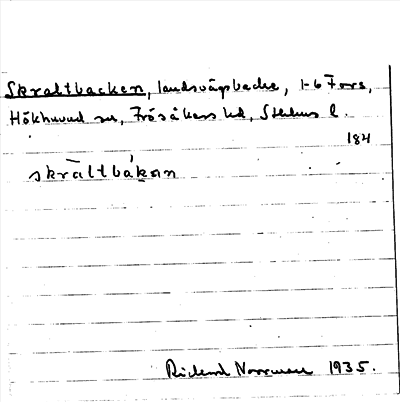 Skraltbacken, landsvägsbacke, 1-6 Fors,
Hökhuvud sn, Frösåkers hd, Sthlms l.
184
skràltbákan
Rickard Norrman 1935.